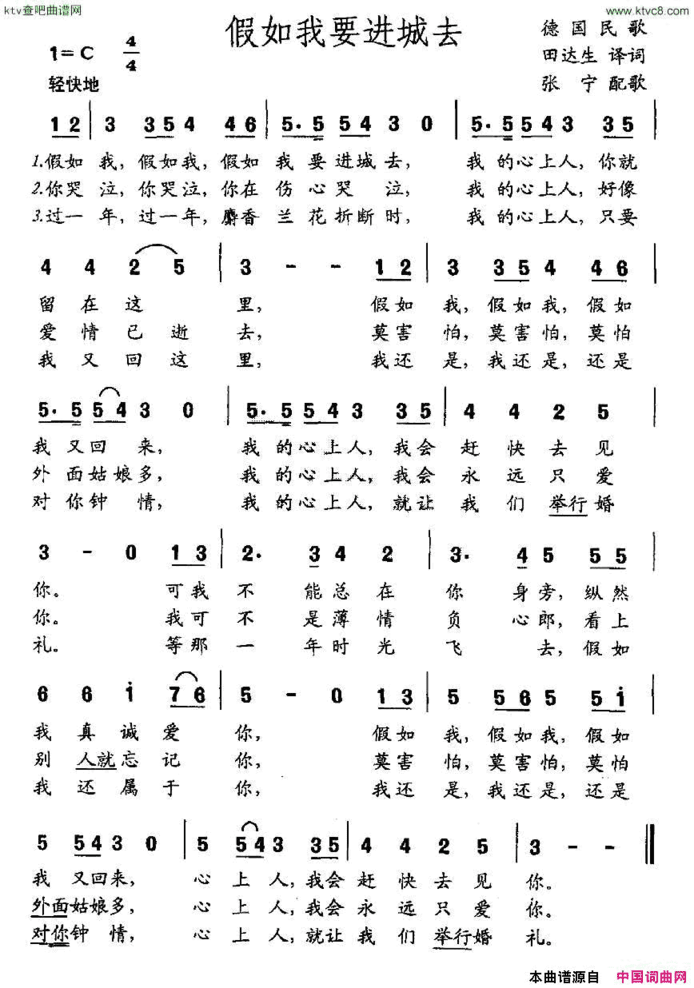 ktv查吧曲谱网
www.ktvc8.com
假如我要进城去
德国民歌
田达生 译词
张宁配歌
1=C 4/4
轻快地
12 | 3 354 46 | 5·5 543 0 | 5·5543 35 |
1.假如 我,假如我,假如 我 要进城去, 我 的心上人,你就
2.你哭 泣,你哭泣,你在 伤 心哭 泣, 我 的心上人,好像
3.过一 年,过一年,麝香 兰 花折断时, 我 的心上人,只要
4 4 2 5 | 3 - - 12 | 3 354 46 |
留 在 这 里, 假如 我,假如我,假如
爱 情 已 逝 去, 莫害 怕,莫害怕,莫怕
我 又 回 这 里, 我还 是,我还是,还是
5·5 543 0 | 5·5 543 35 | 4 4 2 5 |
我 又回 来, 我 的心上人,我会 赶 快 去 见
外 面姑娘多, 我 的心上人,我会 永 远 只 爱
对 你钟 情, 我 的心上人,就让 我 们 举行 婚
3 - 0 13 | 2· 3 4 2 | 3· 5 55 |
你。 可我 不 能总 在 你 身旁,纵然
你。 我可 不 是薄 情 负 心郎,看上
礼。 等那 一 年时 光 飞 去,假如
6 6 i 76 | 5 - 0 13 | 5 565 5i |
我 真 诚 爱 你, 假如 我,假如我,假如
别 人就 忘 记 你, 莫害 怕,莫害怕,莫怕
我 还 属 于 你, 我还 是,我还是,还是
5 543 0 | 5 543 35 | 4 4 2 5 | 3 - - ‖
我 又回来, 心 上 人,我会 赶 快 去 见 你。
外面姑娘多, 心 上 人,我会 永 远 只 爱 你。
对你钟 情, 心 上 人,就让 我 们 举行 婚 礼。
本曲谱源自 中国词曲网